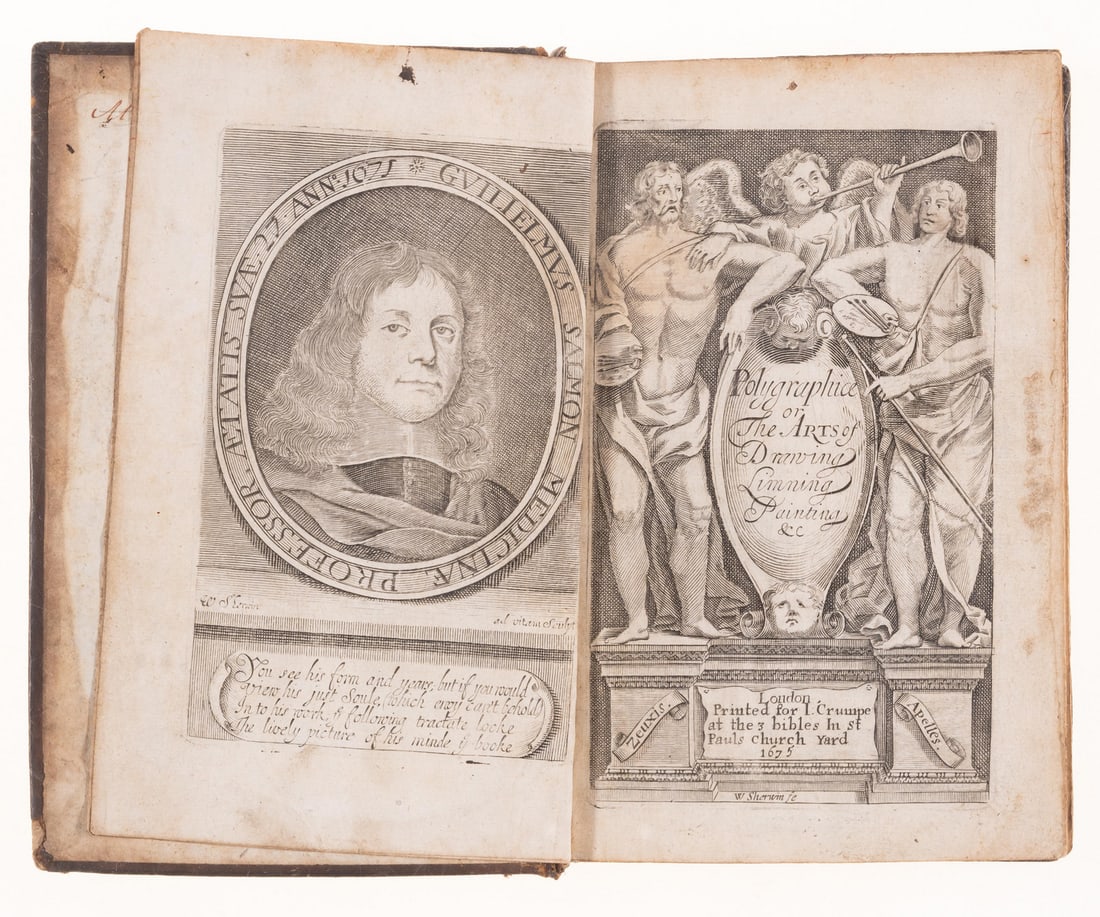 GVILIELMVS SALMON MEDICINÆ PROFESSOR ÆTATIS SVÆ 27 ANNº: 1671
W Sherwin
ad vitam Sculpt
You see his form and years, but if you would
View his just Soule, (which envy cant behold)
In to his work, & following tractate looke
The lively picture of his minde, & booke
Polygraphice
or
The ARTS of
Drawing
Limning
Painting
&c
Zeuxis
London
Printed for I. Crumpe
at the 3 bibles In St
Pauls Church Yard
1675
Apelles
W Sherwin fe